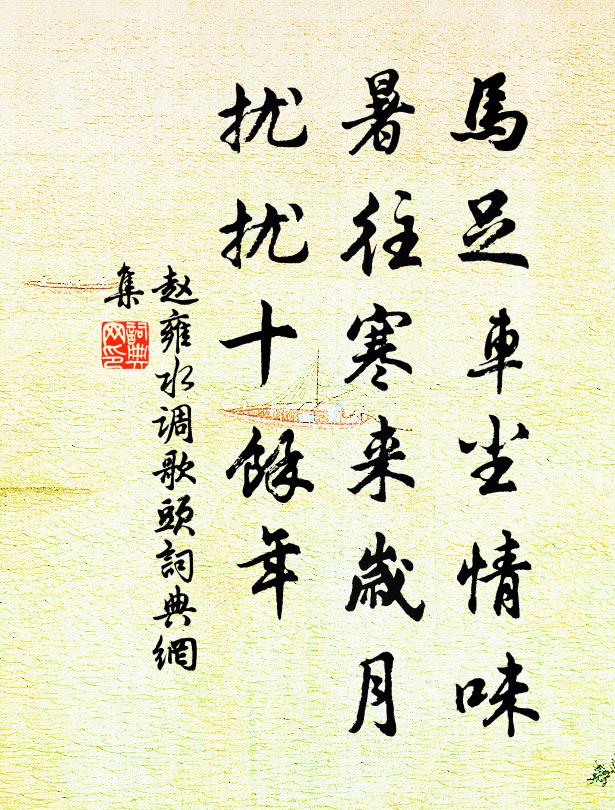 馬足車尘情味
暑往寒来歲月
扰扰十餘年
赵雍水调歌頭詞典網
集
詞典网印